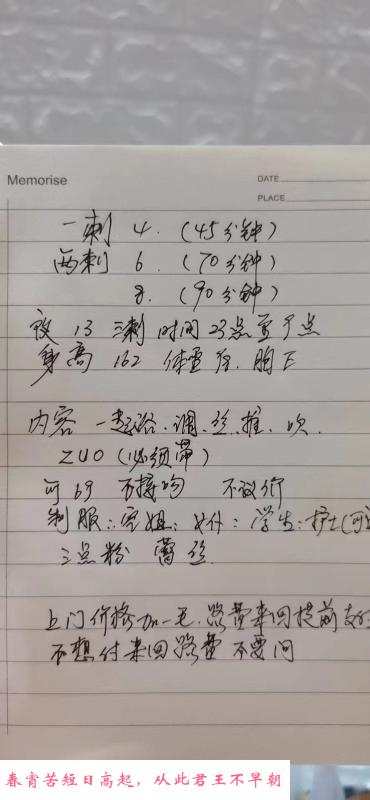 Memorise
DATE
PLACE
一刺 4. (45分钟)
两刺 6. (70分钟)
8. (90分钟)
夜 13 三刺 时间 23点至7点
身高 162 体重 胸E
内容 一起浴.调.丝.推.吹.
ZUO (必须带)
可69 不接吻 不议价
制服:空姐:女仆:学生:护士(可
三点粉 蕾丝
上门价格加一毛.路费来回提前支付
不想付来回路费 不要问
春宵苦短日高起，从此君王不早朝